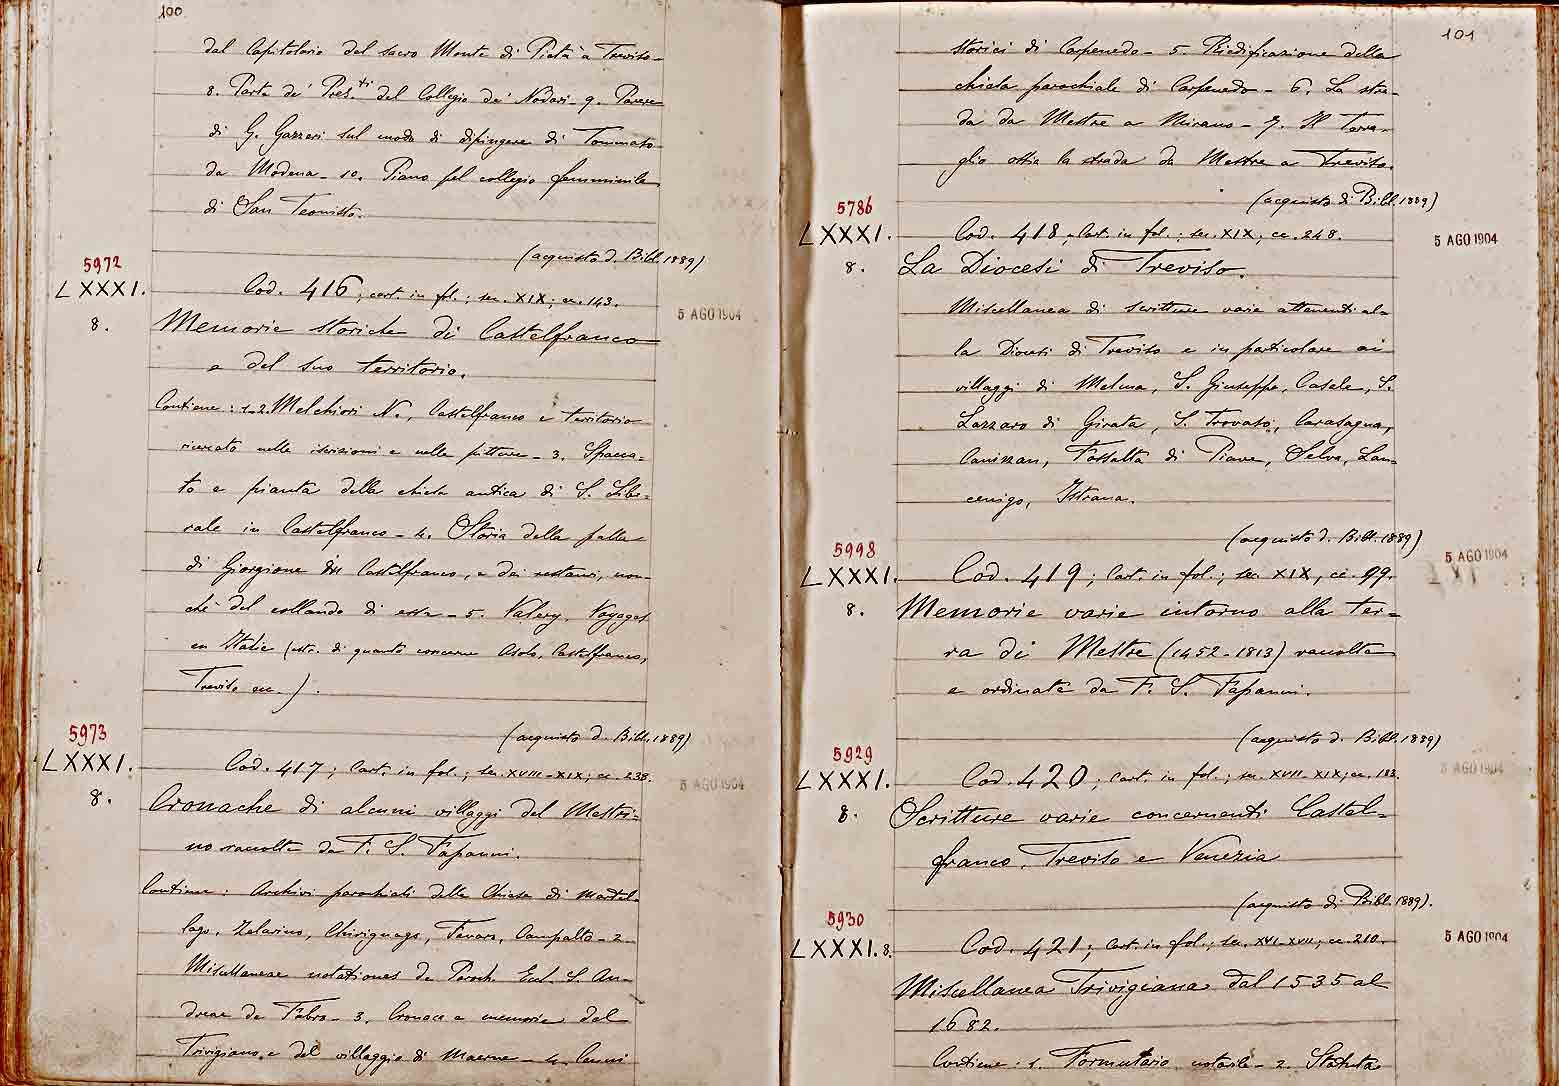 100
dal Capitolario del sacro Monte di Pietà à Treviso-
8. Parte de' Pres.ti del Collegio de' Nodari - 9. Parere
di G. Gazzeri sul modo di dipingere di Tommaso
da Modena - 10. Piano pel collegio femminile
di San Teonisto.
(acquisto d. Bibl. 1889)
5972
LXXXI.
8.
Cod. 416; cart. in fol.; sec. XIX; cc. 143.
5 AGO 1904
Memorie storiche di Castelfranco
e del suo territorio.
Contiene: 1-2 Melchiori N., Castelfranco e territorio
ricercato nelle iscrizioni e nelle pitture - 3. Spacca=
to e pianta della chiesa antica di S. Libe=
rale in Castelfranco - 4. Storia della palla
di Giorgione in Castelfranco, e dei restauri, non-
chè del collaudo di essa - 5. Valery. Voyages
en Italie (estr. di quanto concerne Asolo, Castelfranco,
Treviso ecc.).
(acquisto d. Bibl. 1889)
5973
LXXXI.
8.
Cod. 417; Cart. in fol.; sec. XVIII-XIX; cc. 238.
5 AGO 1904
Cronache di alcuni villaggi del Mestri=
no raccolte da F. S. Fapanni.
Contiene: Archivi parochiali delle Chiese di Martel-
lago, Zelarino, Chirignago, Favaro, Campalto - 2.
Miscellaneae notationes de Paroch. Eccl. S. An-
dreae de Fabro - 3. Cronaca e memorie del
Trivigiano e del villaggio di Maerne - 4. Cenni
101
storici di Carpenedo - 5. Riedificazione della
chiesa parochiale di Carpenedo - 6. La stra-
da da Mestre a Mirano - 7. Il Terra-
glio ossia la strada da Mestre a Treviso.
(acquisto di Bibl. 1889)
5786
LXXXI.
8.
Cod. 418; Cart. in fol.; sec. XIX; cc. 248.
5 AGO 1904
La Diocesi di Treviso.
Miscellanea di scritture varie attenenti al=
la Diocesi di Treviso e in particolare ai
villaggi di Melma, S. Giuseppe, Casale, S.
Lazzaro di Girata, S. Trovaso, Cavasagra,
Canizzan, Fossalta di Piave, Selva, Lan=
cenigo, Istrana.
(acquisto d. Bibl. 1889)
5998
LXXXI.
8.
Cod. 419; Cart. in fol.; sec. XIX, cc. 99.
5 AGO 1904
Memorie varie intorno alla ter=
ra di Mestre (1452-1813) raccolte
e ordinate da F. S. Fapanni.
(acquisto d. Bibl. 1889)
5929
LXXXI.
8.
Cod. 420; cart. in fol.; sec. XVII-XIX; cc. 183.
5 AGO 1904
Scritture varie concernenti Castel=
franco, Treviso e Venezia
(acquisto di Bibl. 1889).
5930
LXXXI. 8.
Cod. 421; cart. in fol.; sec. XVI-XVII; cc. 210.
5 AGO 1904
Miscellanea Trivigiana dal 1535 al
1682.
Contiene: 1. Formulario notarile - 2. Statuta